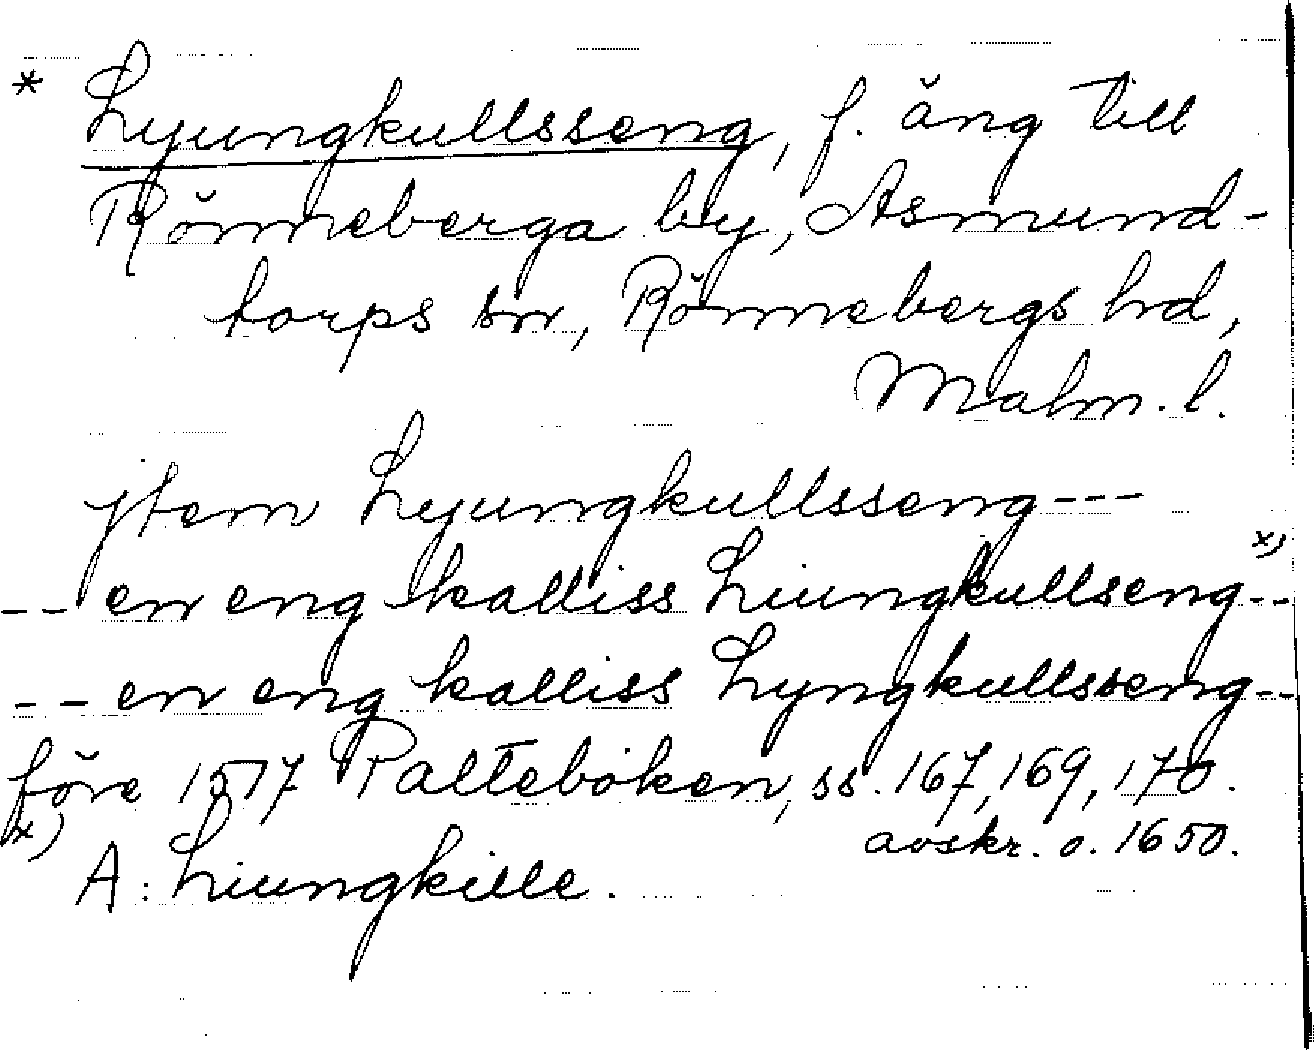 * Lyungkullsseng, f. äng till
Rönneberga by, Asmund-
torps sn, Rönnebergs hd,
Malm. l.
jtem Lyungkullsseng---
-- en eng kalliss Liungkullseng x) --
-- en eng kalliss Lyngkullsseng--
före 1577 Palteboken, ss. 167, 169, 170.
avskr. o. 1650.
x) A: Liungkille.